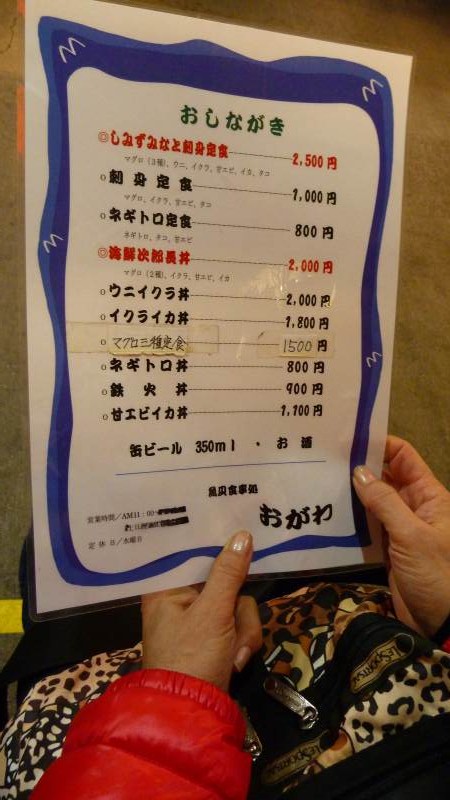 おしながき
◎しみずみなと刺身定食 2,500円
マグロ(3種)、ウニ、イクラ、甘エビ、イカ、タコ
○刺身定食 1,000円
マグロ、イクラ、甘エビ、タコ
○ネギトロ定食 800円
ネギトロ、タコ、甘エビ
◎海鮮次郎長丼 2,000円
マグロ(2種)、イクラ、甘エビ、イカ
○ウニイクラ丼 2,000円
○イクライカ丼 1,800円
マグロ三種定食 1500円
○ネギトロ丼 800円
○鉄火丼 900円
○甘エビイカ丼 1,100円
缶ビール 350ml ・ お酒
魚河食事処
おがわ
営業時間/AM11:00~
定休日/水曜日
LESPORTSAC